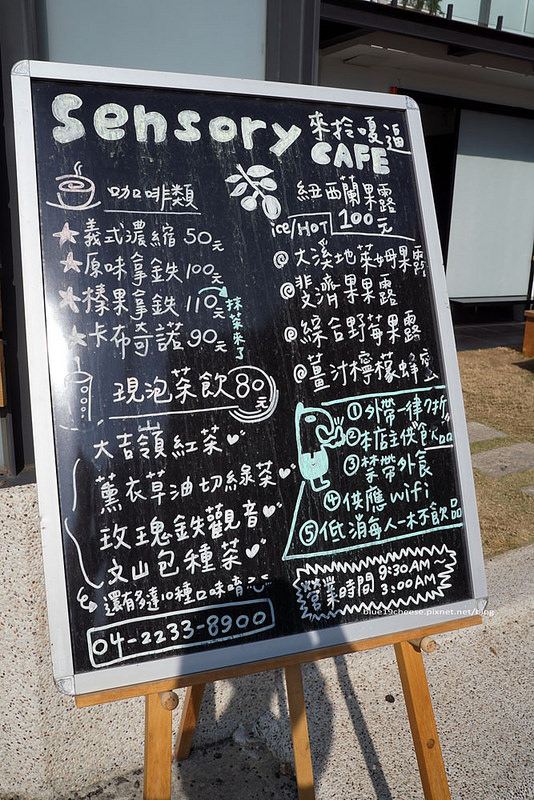 sensory
來拎嘎逼
CAFE
咖啡類
義式濃縮 50元
原味拿鐵 100元
榛果拿鐵 110元
抹茶來了
卡布奇諾 90元
現泡茶飲 80元
大吉嶺紅茶
薰衣草油切綠茶
玫瑰鐵觀音
文山包種茶
還有多達10種口味唷
04-2233-8900
紐西蘭果露
ice/HOT 100元
@大溪地萊姆果露
@斐濟果果露
@綜合野莓果露
@薑汁檸檬蜂蜜
①外帶一律9折
②本店主供飲品
③禁帶外食
④供應wifi
⑤低消每人一杯飲品
營業時間 9:30AM~
3:00AM
blue19cheese.pixnet.net/blog